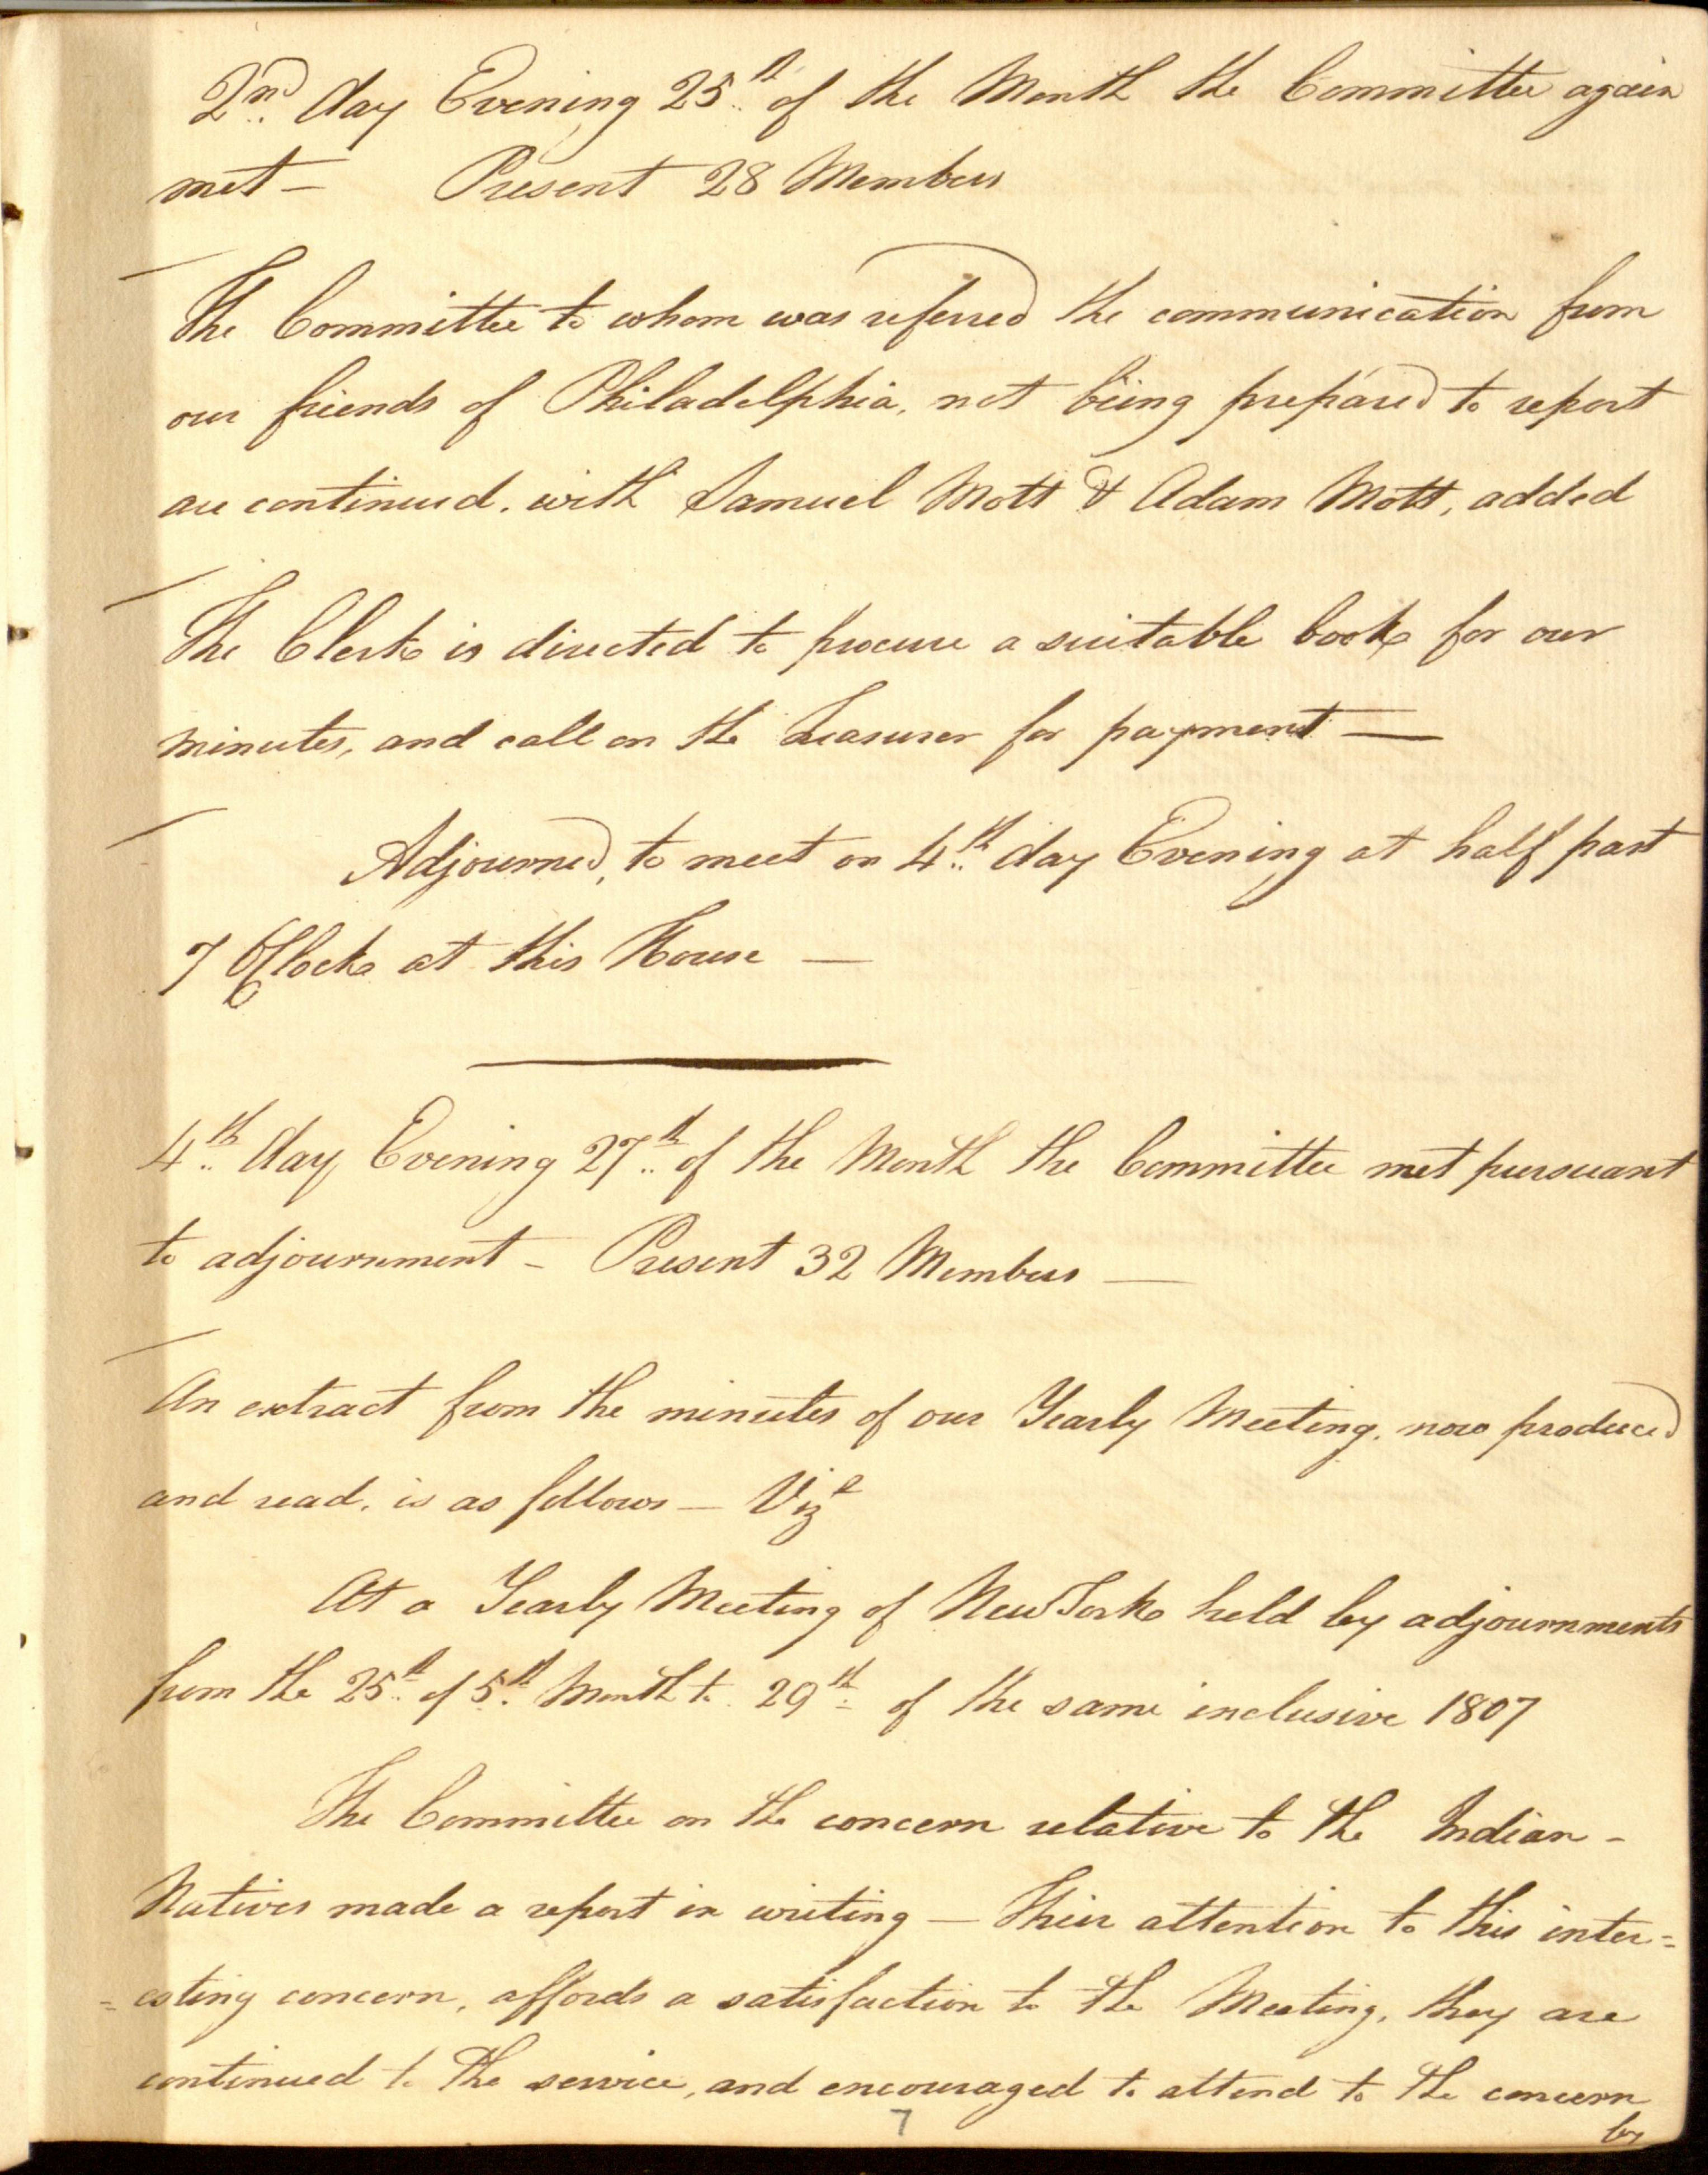 2nd day Evening 25th of the Month the Committee again
met – Present 28 Members
The Committee to whom was referred the communication from
our friends of Philadelphia, not being prepared to report
are continued. with Samuel Mott & Adam Mott, added
The Clerk is directed to procure a suitable book for our
minutes, and call on the Treasurer for payment —
Adjourned, to meet on 4th day Evening at half past
7 OClock at this House —
4th day Evening 27th of the Month the Committee met pursuant
to adjournment – Present 32 Members —
An extract from the minutes of our Yearly Meeting, now produced
and read, is as follows – Vizt
At a Yearly Meeting of New York held by adjournments
from the 25th of 5th Month to 29th of the same inclusive 1807
The Committee on the concern relative to the Indian -
Natives made a report in writing – Their attention to this inter=
=esting concern, affords a satisfaction to the Meeting, they are
continued to the service, and encouraged to attend to the concern
7
by